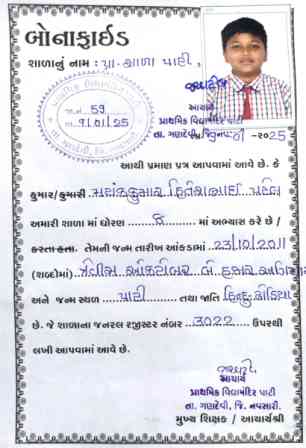 બોનાફાઈડ
શાળાનું નામ : પ્રા. શાળા પાટી,
આચાર્ય
પ્રાથમિક વિદ્યામંદિર પાટી
તા. ગણદેવી, જિ. નવસારી
જા.નં. 59
તા. 9/01/25
-૨૦25
આથી પ્રમાણ પત્ર આપવામાં આવે છે. કે
કુમાર/કુમારી હિતેશભાઈ પટેલ
અમારી શાળા માં ધોરણ ૮ માં અભ્યાસ કરે છે /
કરતા હતા. તેમની જન્મ તારીખ આંકડામાં 23/10/2011
(શબ્દોમાં) ત્રેવીસ ઓકટોબર બે હજાર અગિયાર
અને જન્મ સ્થળ પાટી તથા જાતિ હિન્દુ ધોડિયા
છે. જે શાળાના જનરલ રજીસ્ટર નંબર 3022 ઉપરથી
લખી આપવામાં આવે છે.
આચાર્ય
પ્રાથમિક વિદ્યામંદિર પાટી
તા. ગણદેવી, જિ. નવસારી.
મુખ્ય શિક્ષક / આચાર્યશ્રી